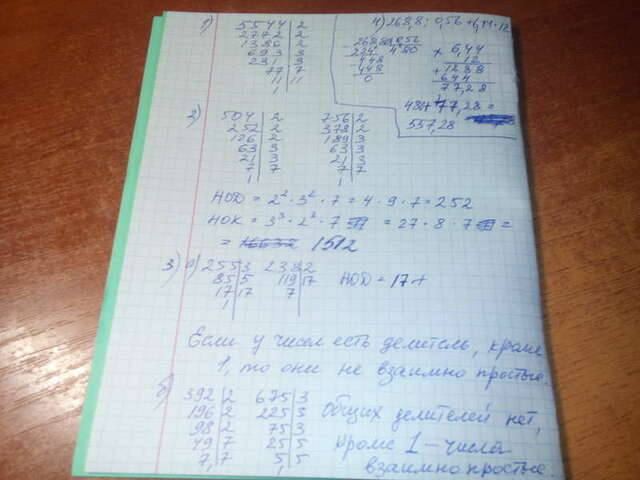 1) 5544 | 2
2772 | 2
1386 | 2
693 | 3
231 | 3
77 | 7
11 | 11
1
4) 268,8 : 0,56 + 6,44 · 12
268,80 | 0,56
224 | 480
448
448
0
× 6,44
12
+ 1288
644
77,28
480 + 77,28 =
557,28
2) 504 | 2 756 | 2
252 | 2 378 | 2
126 | 2 189 | 3
63 | 3 63 | 3
21 | 3 21 | 3
7 | 7 7 | 7
1 1
НОД = 2² · 3² · 7 = 4 · 9 · 7 = 252
НОК = 3³ · 2³ · 7 = 27 · 8 · 7 =
= 1512
3) а) 255 | 3 238 | 2
85 | 5 119 | 17
17 | 17 7
1
НОД = 17 +
Если у чисел есть делитель, кроме
1, то они не взаимно простые.
б) 392 | 2 675 | 3
196 | 2 225 | 3
98 | 2 75 | 3
49 | 7 25 | 5
7 | 7 5 | 5
Общих делителей нет,
кроме 1 – числа
взаимно простые.